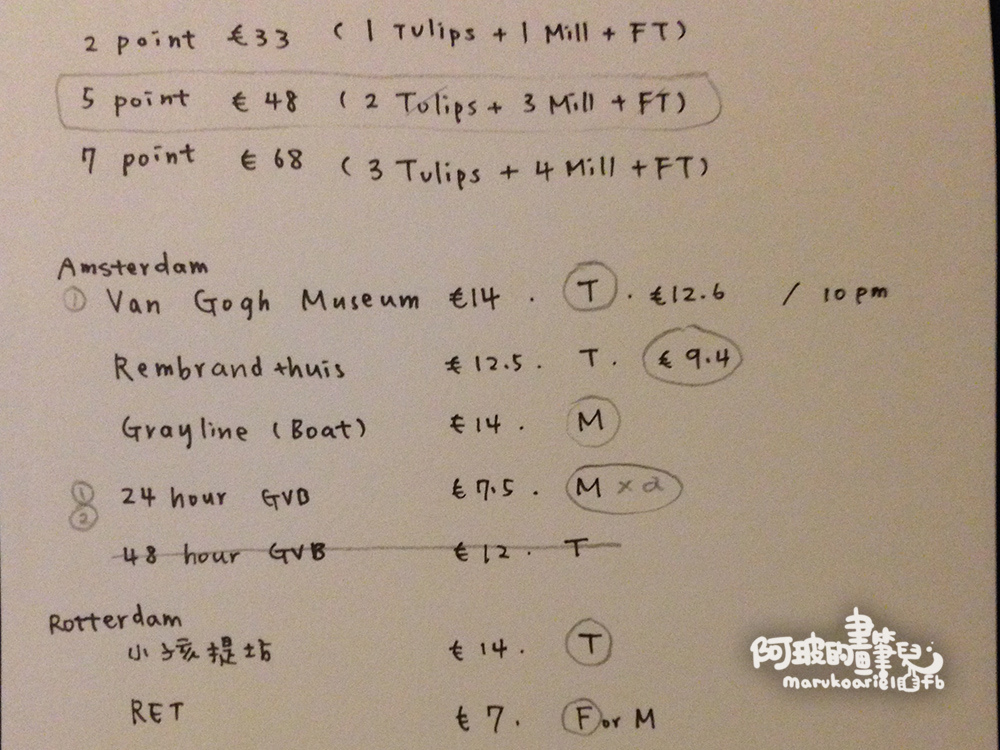 2 point €33 (1 Tulips + 1 Mill + FT)
5 point €48 (2 Tulips + 3 Mill + FT)
7 point €68 (3 Tulips + 4 Mill + FT)
Amsterdam
① Van Gogh Museum €14 . T . €12.6 / 10 pm
Rembrandthuis €12.5 . T . €9.4
Grayline (Boat) €14 . M
① ② 24 hour GVB €7.5 . M x 2
48 hour GVB €12 . T
Rotterdam
小孩提坊 €14 . T
RET €7 . F or M
阿玻的畫筆兒
marukoariel fb